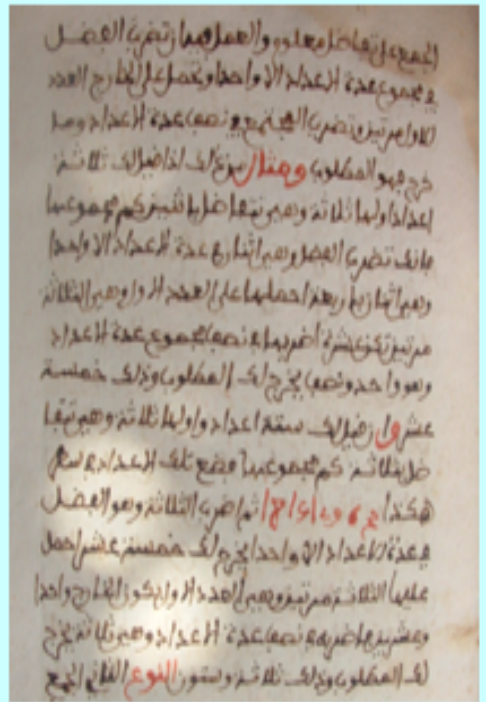 الجمع على تفاضل معلوم والعمل فيه ان تضرب الفضل
في مجموع عدة الاعداد الا واحدا وتحمل على الخارج العدد
الاول مرتين وتضرب المجتمع في نصف عدة الاعداد وما
خرج فهو المطلوب ومثال ذلك اذا قيل لك ثلاثة
اعداد اولها ثلاثة وهي تتفاضل باثنين كم مجموعها
فانك تضرب الفضل وهي اثنان في عدة الاعداد الا واحدا
وهي اثنان باربعة احملها على العدد الاول وهي الثلاثة
مرتين تكن عشرة اضربها في نصف مجموع عدة الاعداد
وهو واحد ونصف يخرج لك المطلوب وذلك خمسة
عشر وان قيل لك ستة اعداد واولها ثلاثة وهي تتفا
ضل بثلاثة كم مجموعها فضع تلك الاعداد في سطر
هكذا ثم اضرب الثلاثة وهو الفضل
في عدة الاعداد الا واحدا يخرج لك خمسة عشر احمل
عليها الثلاثة مرتين وهي العدد الاول يكون الخارج واحدا
وعشرين فاضربه في نصف عدة الاعداد وهي ثلاثة يخرج
لك المطلوب وذلك ثلاثة وستون النوع الثاني الجمع